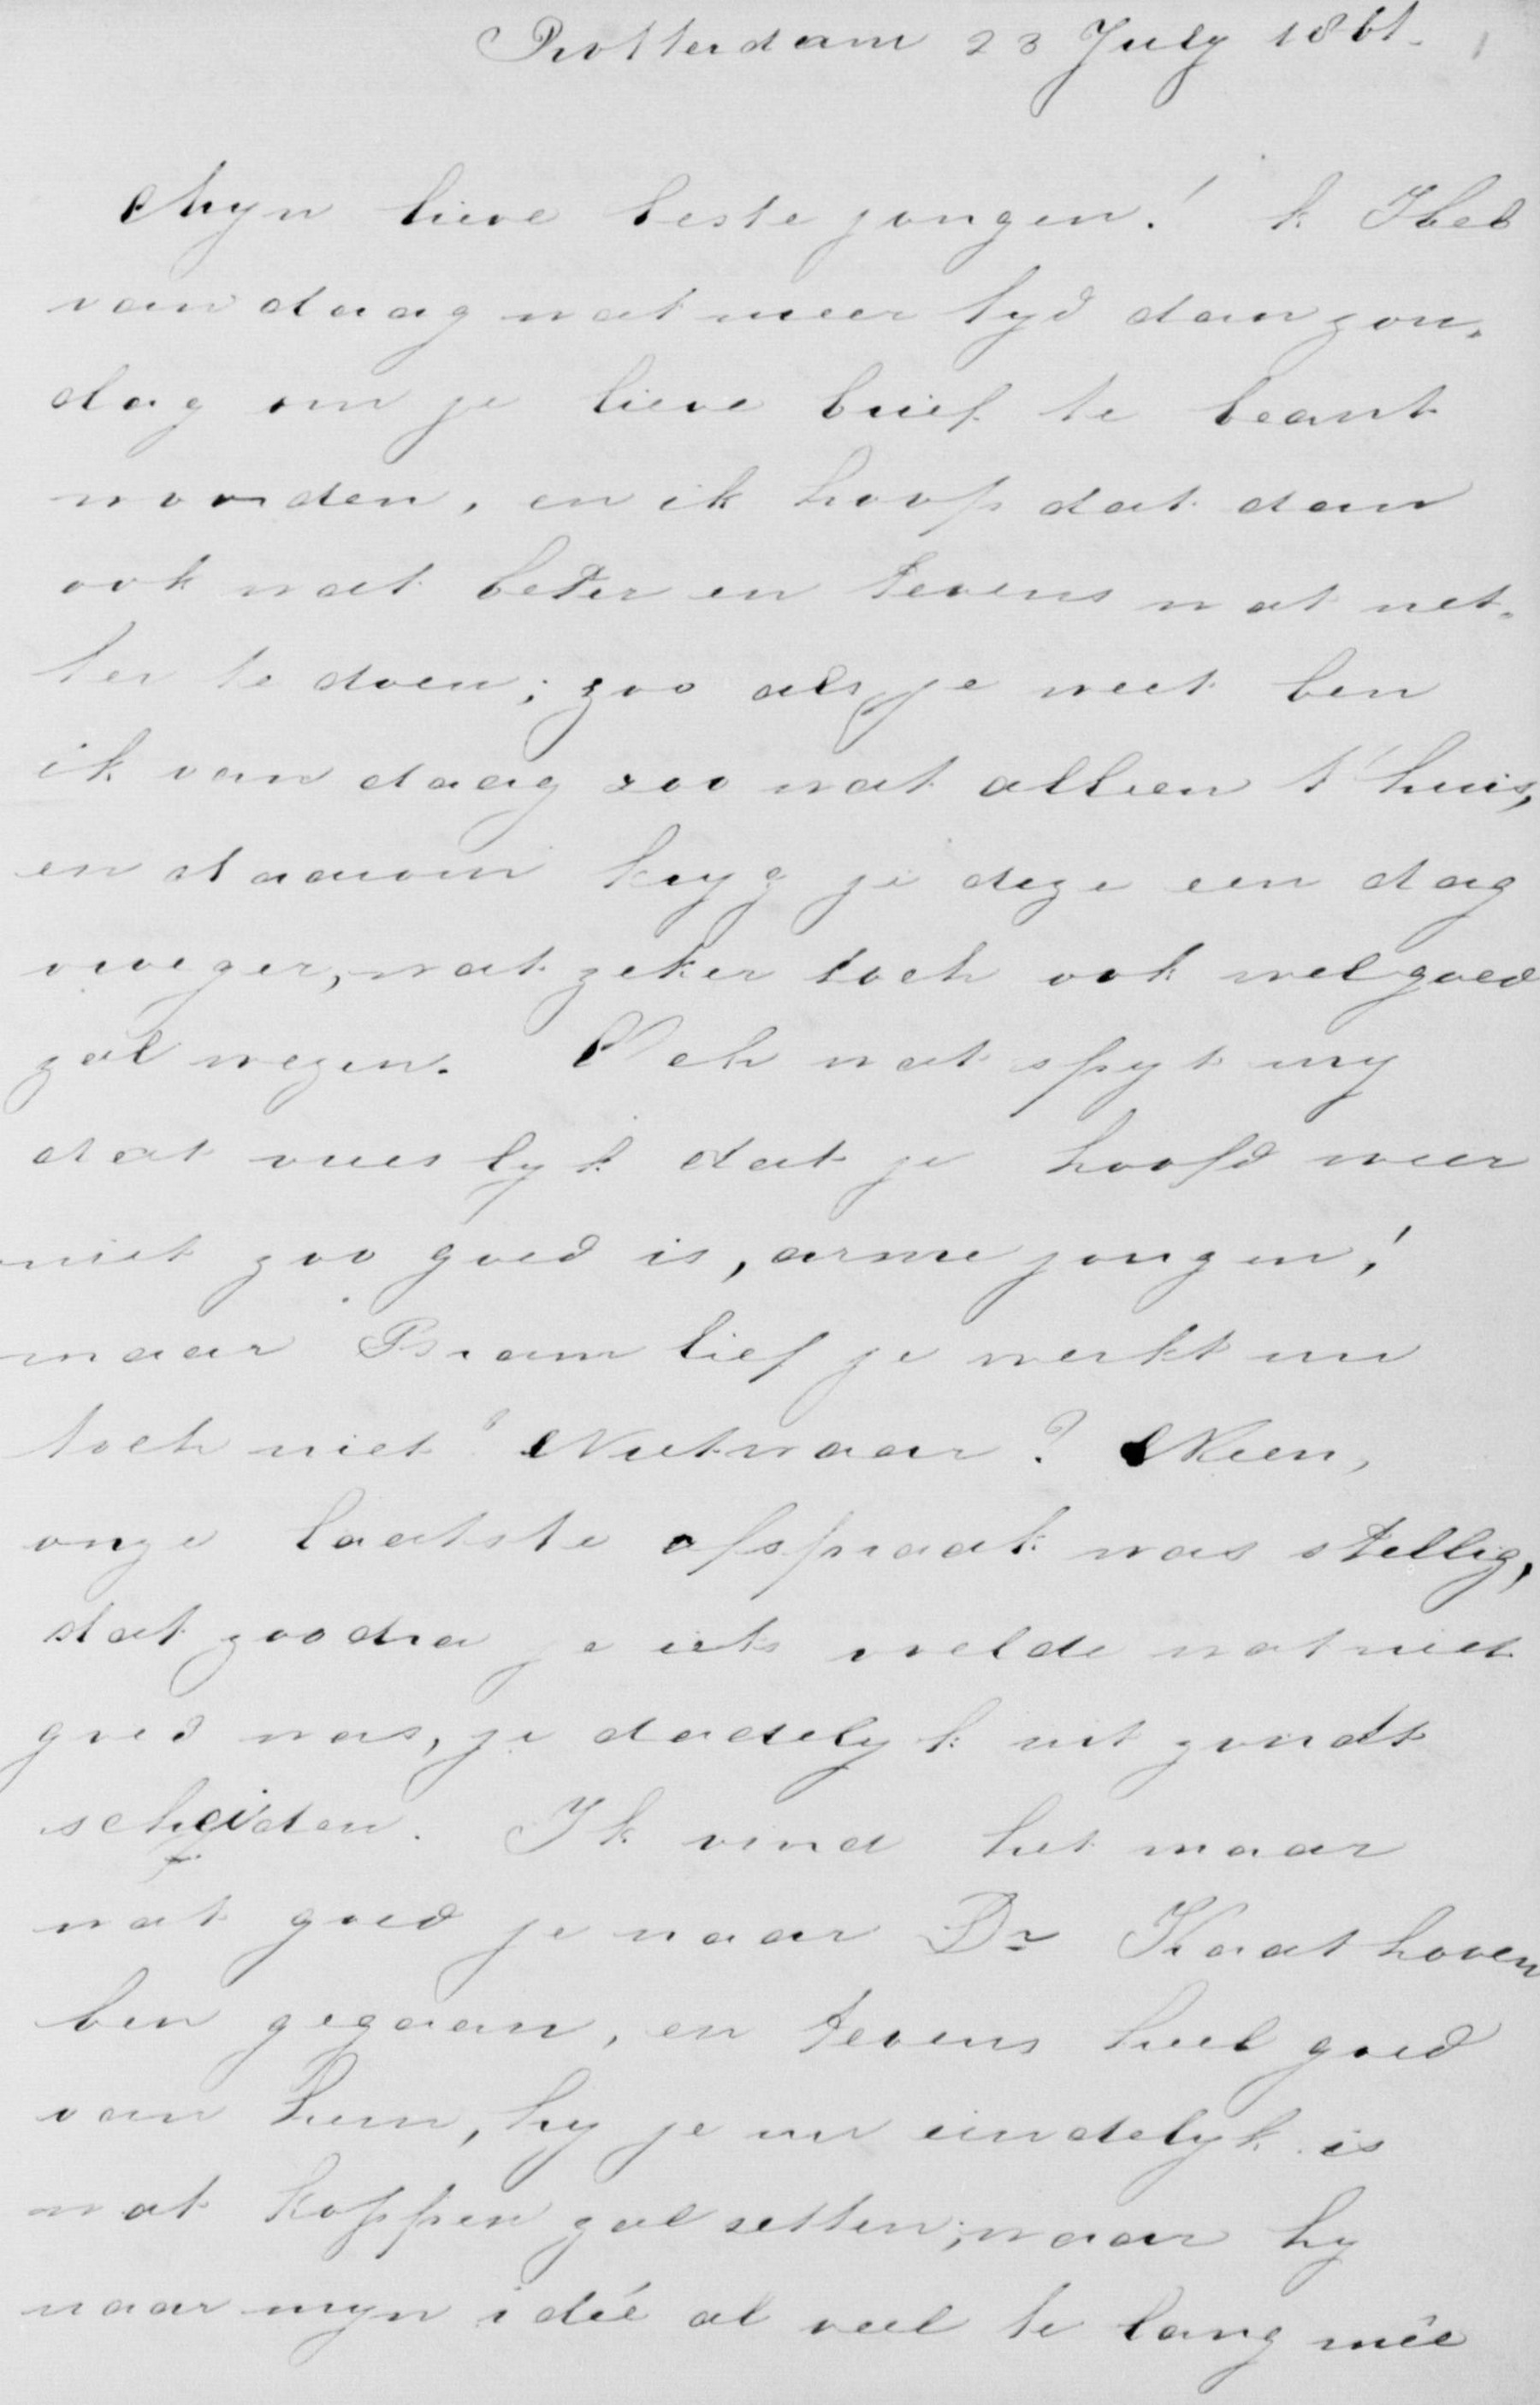 Rotterdam 23 July 1861.
Myn lieve beste jongen! k Heb
van daag wat meer tyd dan zon„
dag om je lieve brief te beant
woorden, en ik hoop dat dan
ook wat beter en tevens wat net„
ter te doen; zoo als je weet ben
ik van daag zoo wat alleen t'huis,
en daarom kryg je deze een dag
vroeger, wat zeker toch ook wel goed
zal wezen. Och wat spyt my
dat vreeslyk dat je hoofd weer
niet zoo goed is, arme jongen!
maar Bram lief je werkt nu
toch niet? Nietwaar? Neen,
onze laatste afspraak was stellig,
dat zoodra je iets voelde wat niet
goed was, je dadelyk uit zoudt
scheiden. Ik vind het maar
wat goed je naar Dr Kaathoven
ben gegaan, en tevens heel goed
van hem, hy je nu eindelyk is
wat koppen zal setten; waar hy
naar myn idée al veel te lang mêe